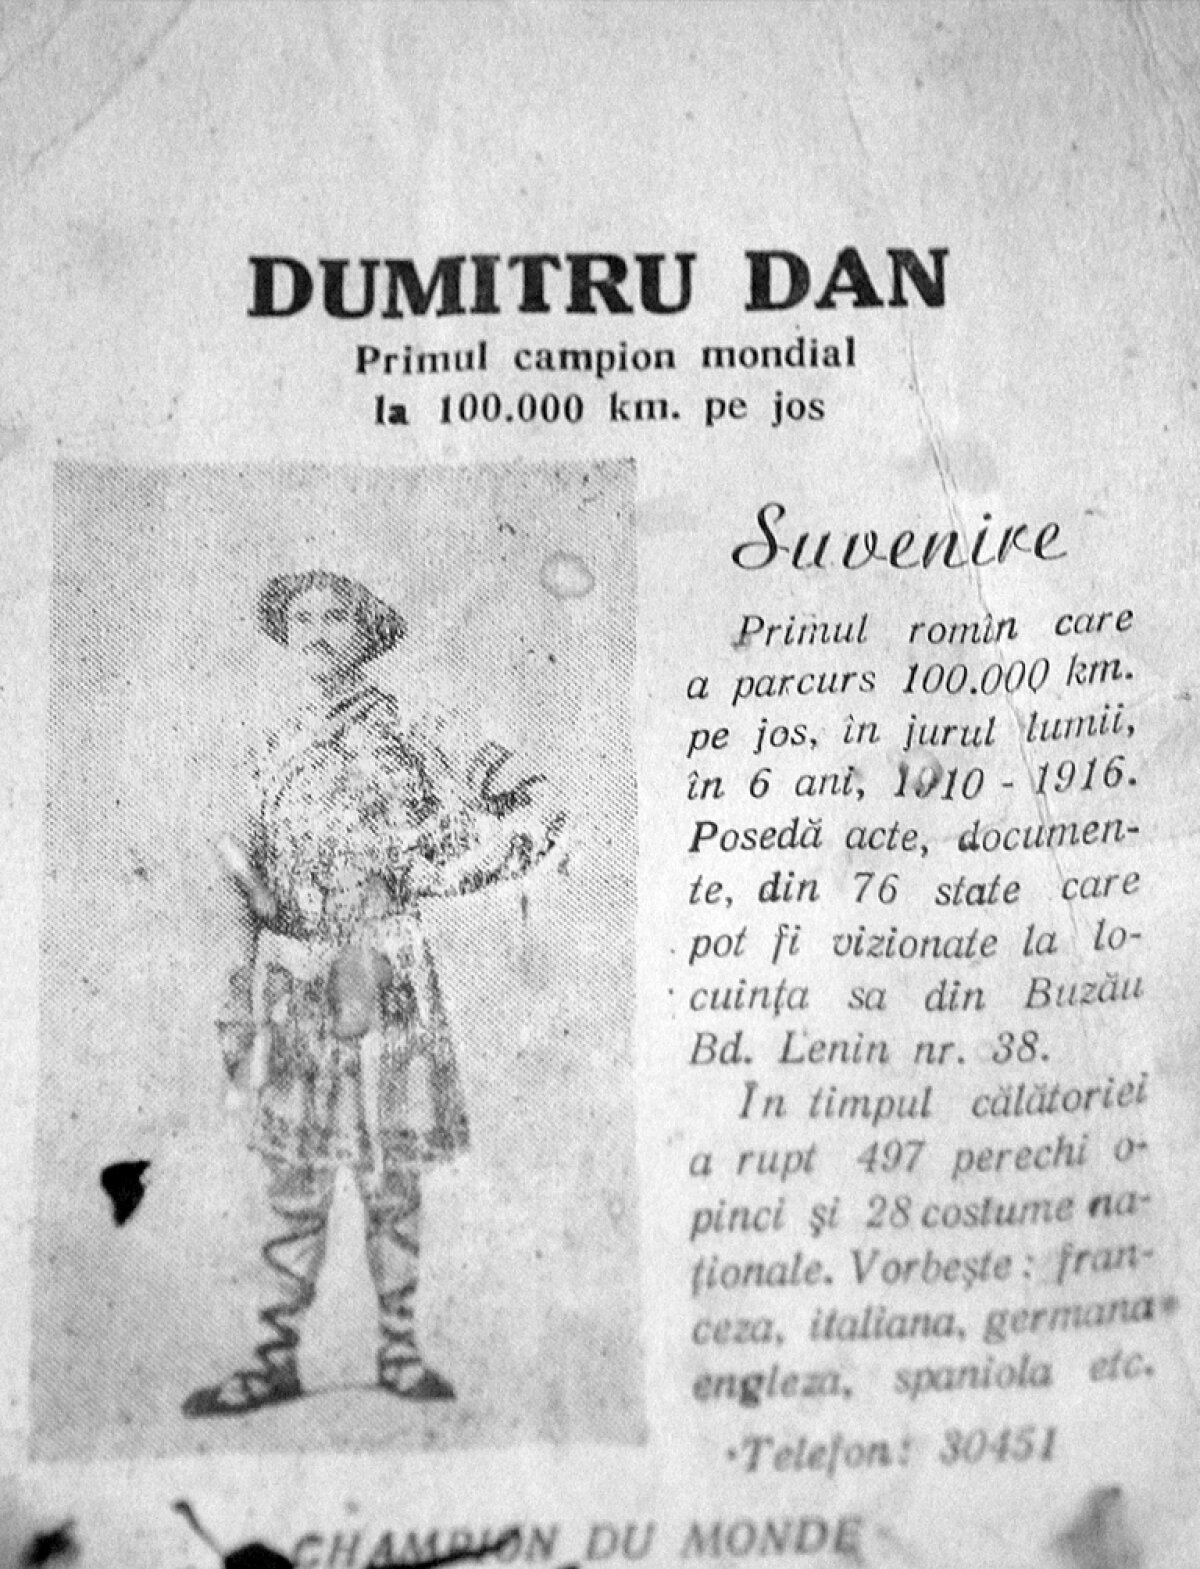 DUMITRU DAN
Primul campion mondial
la 100.000 km. pe jos
Suvenire
Primul romîn care
a parcurs 100.000 km.
pe jos, în jurul lumii,
în 6 ani, 1910 - 1916.
Posedă acte, documen-
te, din 76 state care
pot fi vizionate la lo-
cuința sa din Buzău
Bd. Lenin nr. 38.
In timpul călătoriei
a rupt 497 perechi o-
pinci şi 28 costume na-
ționale. Vorbeşte : fran-
ceza, italiana, germana
engleza, spaniola etc.
Telefon: 30451
CHAMPION DU MONDE